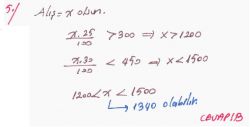 5-) Alış = x olsun.
x.25/100 > 300 ⇒ x > 1200
x.30/100 < 450 ⇒ x < 1500
1200 < x < 1500
↳ 1340 olabilir.
CEVAP: B